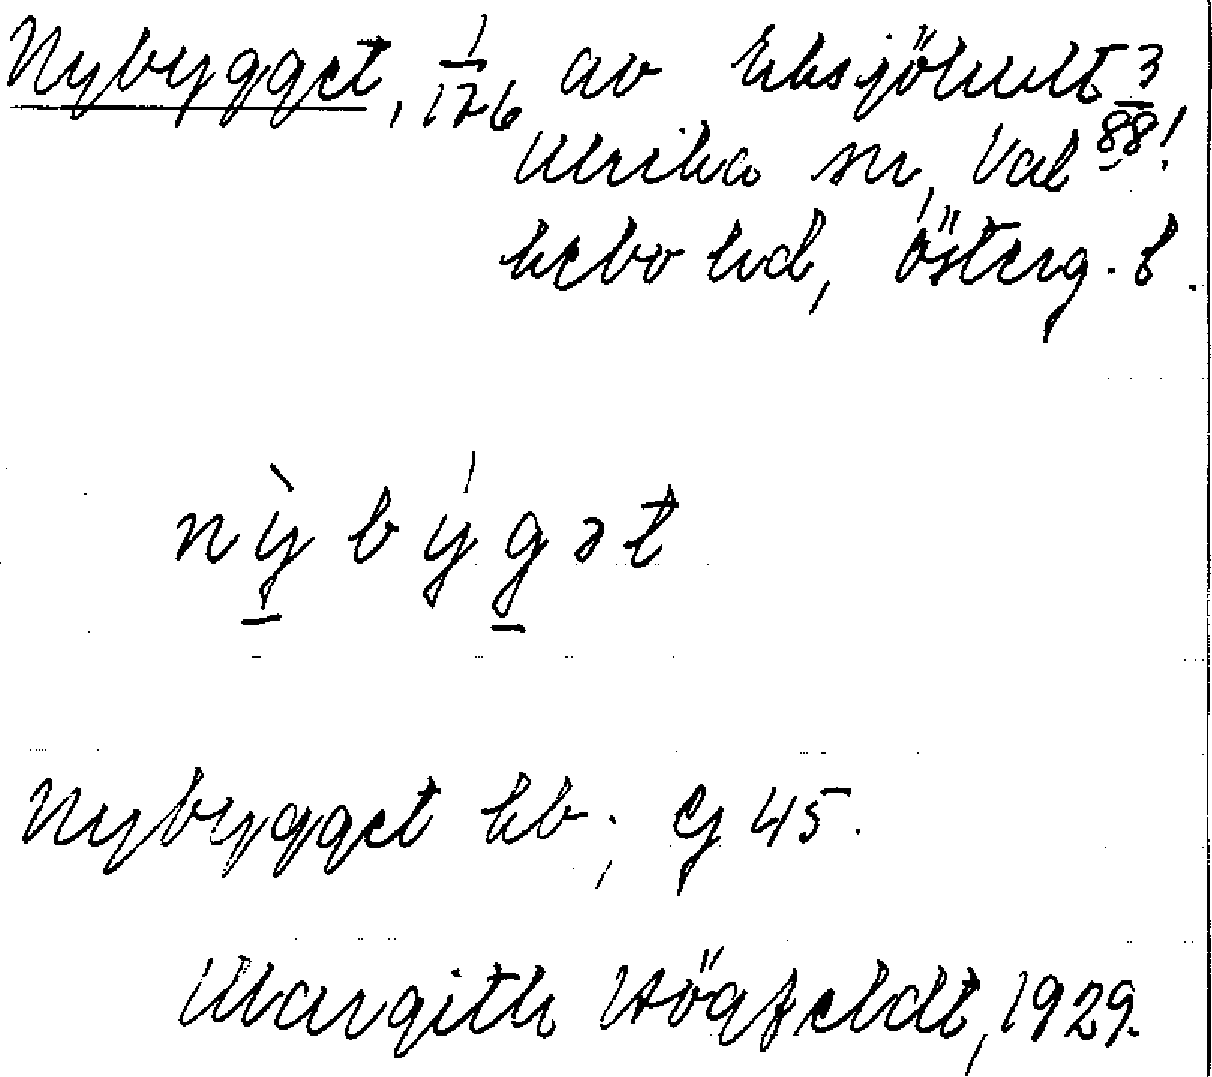 Nybygget, 1/126 av Eksjöhult 3/88!
Ulrika sn, Val
kebo hd, Österg. l.
nỳbýgət
Nybygget kb; Cy 45.
Margith Högfeldt, 1929.